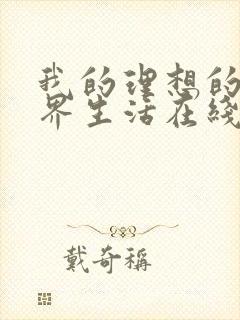 我的理想的
界生活在綫
戴奇稱